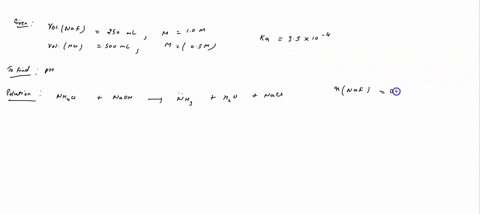 Given:
Vol.(NaF) = 250 mL, M = 1.0 M
Vol.(HCl) = 500 mL, M = (0.5M)
Ka = 3.5 x 10⁻⁴
To find: pH
Solution: NH₄Cl + NaOH → N̈H₃ + H₂O + NaCl
n(NaF) = 0